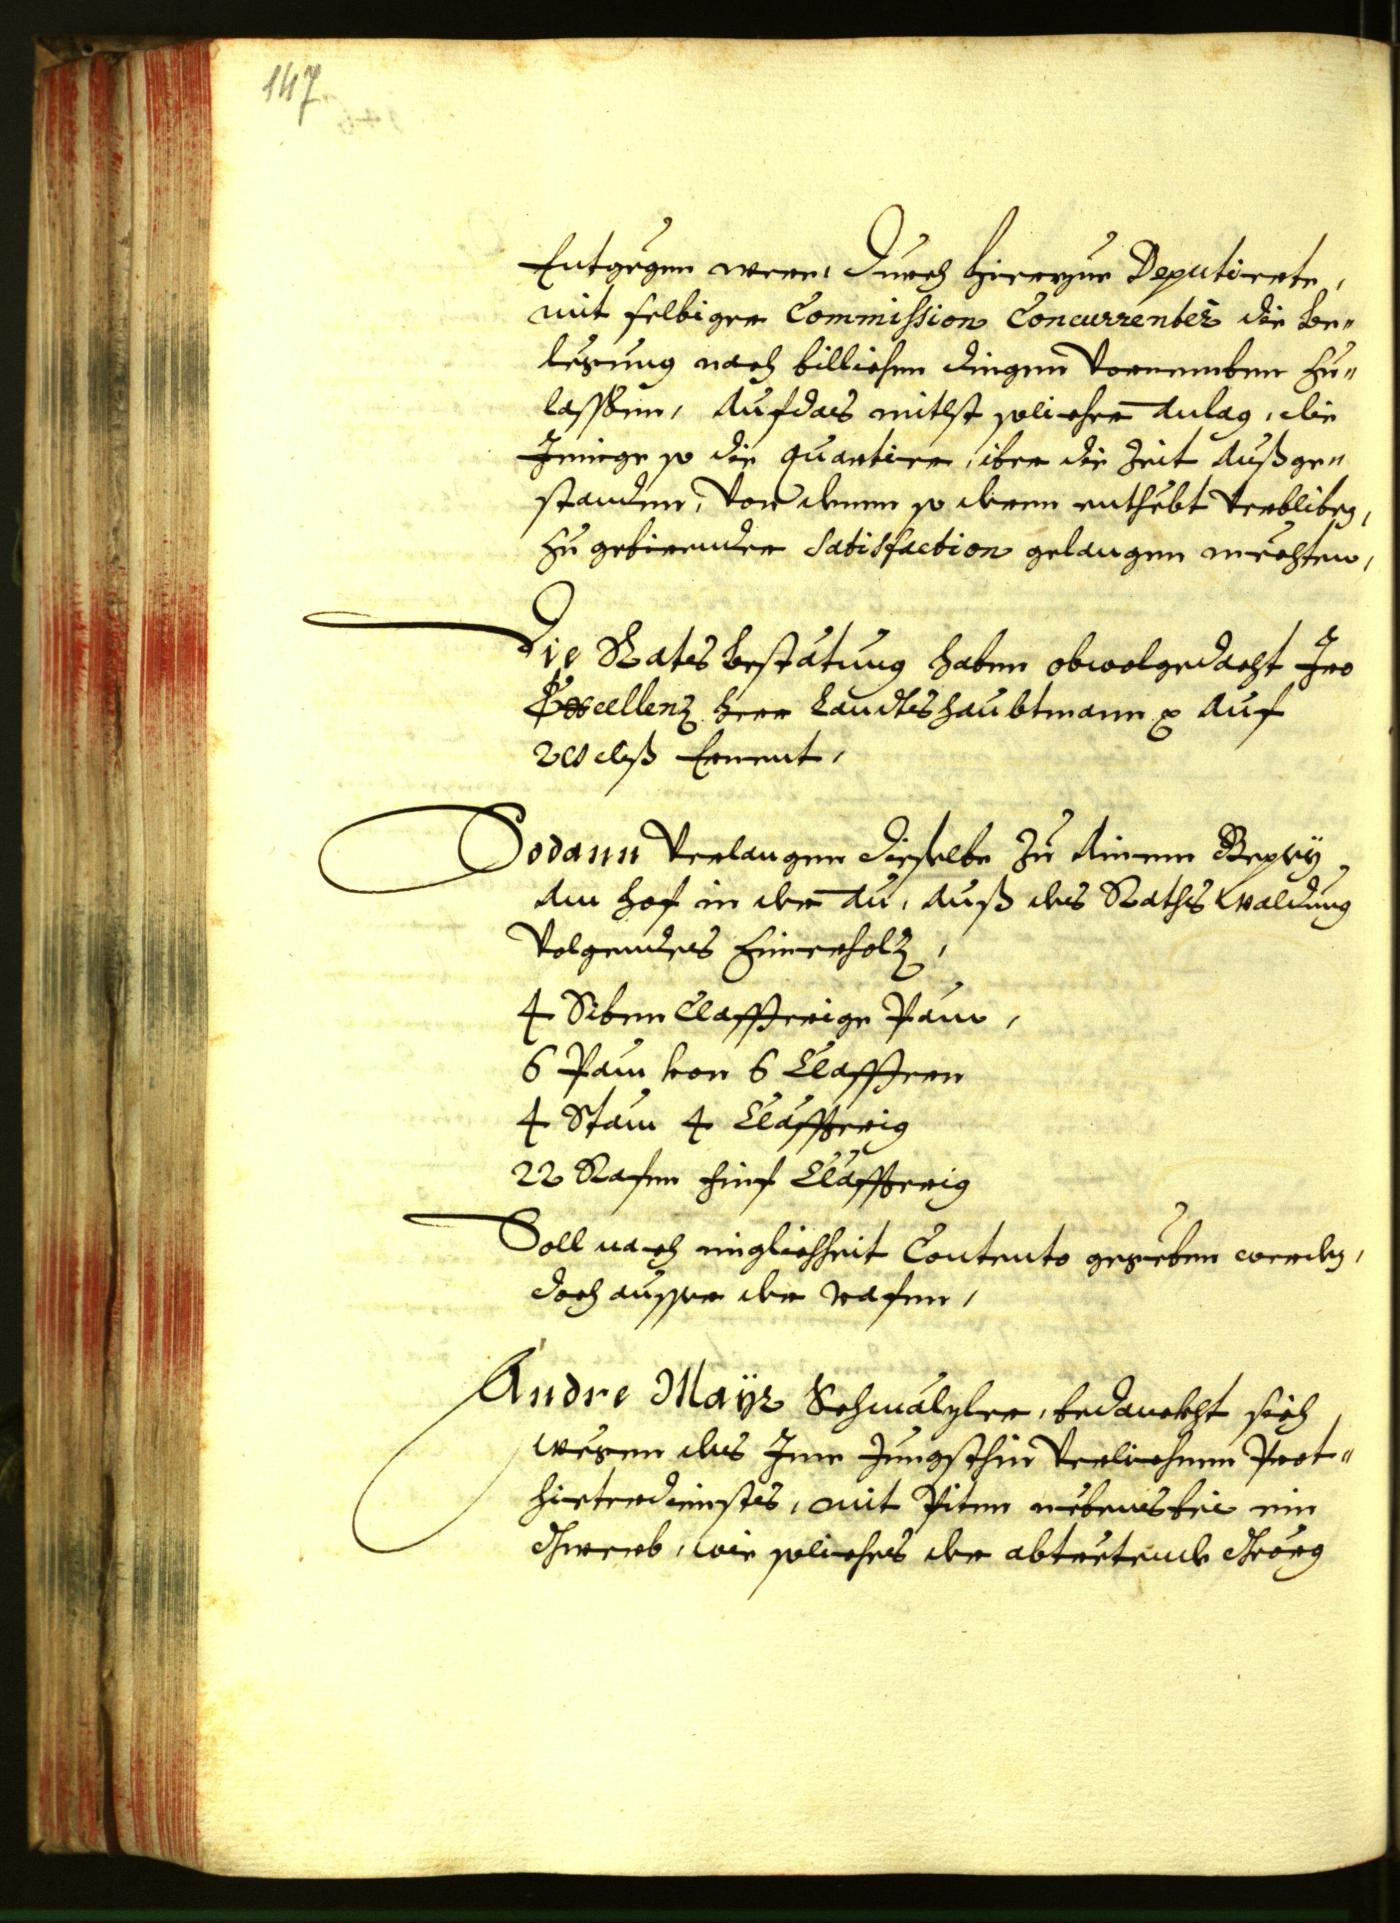 147
Entgegen were, durch hierzue Deputierte,
mit selbiger Commission Concurrenter die be„
legung nach billichen dingen vornemben zu„
lassen, Aufdas mitlst solicher Anlag, die
Jenige so die Quartier, iber die Zeit Außge„
standen, von denen so deren enthebt verbliben,
zu gebirender Satisfaction gelangen mechten,
Die Rats bestätung haben obwolgedacht Iro
Excellenz Herr Landtshaubtmann Auf
Erneut,
Sodann verlangen dieselbe zu Ainem
Am hof in der Au, Auß des Raths Waldung
volgendes Zimerholz,
4 Siben Claffterige Paum,
6 Paum von 6 Claffteren
4 Stam 4 Claffterig
22 Rafen finf Claffterig
Soll nach miglichheit Contento gegeben werden,
doch ausser der rafen,
Andre Mayr Schmälzler, bedanckht sich
wegen des Ime Jungsthin verlichnen Prot„
hieterdiensts, mit Piten nebensbei ein
Gwerb, wie soliches der abtretende Geörg